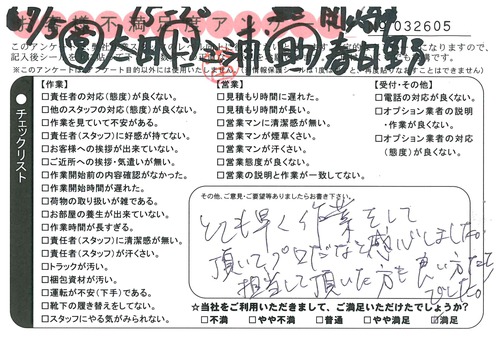 お客様不満足度ア
No 032605
このアンケートは、弊社
記入後シールを
(※このアンケートは
アンケート目的以外には使用いたしません
度貼ると、再度貼りなおすことはできません)
●チェックリスト
【作業】
□責任者の対応(態度)が良くない。
□他のスタッフの対応(態度)が良くない。
□作業を見ていて不安がある。
□責任者(スタッフ)に好感が持てない。
□お客様への挨拶が出来ていない。
□ご近所への挨拶・気遣いが無い。
□作業開始前の内容確認がなかった。
□作業開始時間が遅れた。
□荷物の取り扱いが雑である。
□お部屋の養生が出来ていない。
□作業時間が長すぎる。
□責任者(スタッフ)に清潔感が無い。
□責任者(スタッフ)が汗くさい。
□トラックが汚い。
□梱包資材が汚い。
□運転が不安(下手)である。
□靴下の履き替えをしてない。
□スタッフにやる気がみられない。
【営業】
□見積もり時間に遅れた。
□見積もり時間が長い。
□営業マンに清潔感が無い。
□営業マンが煙草くさい。
□営業マンが汗くさい。
□営業態度が良くない。
□営業の説明と作業が一致してない。
【受付・その他】
□電話の対応が良くない。
□オプション業者の説明
・作業が良くない。
□オプション業者の対応
(態度)が良くない。
その他、ご意見・ご要望等ありましたらお書き下さい。
とても早く作業をして
頂いてプロだなと感心しました。
担当して頂いた方も良い方たち
でした。
☆当社をご利用いただきまして、ご満足いただけたでしょうか?
□不満 □やや不満 □普通 □やや満足 ☑満足